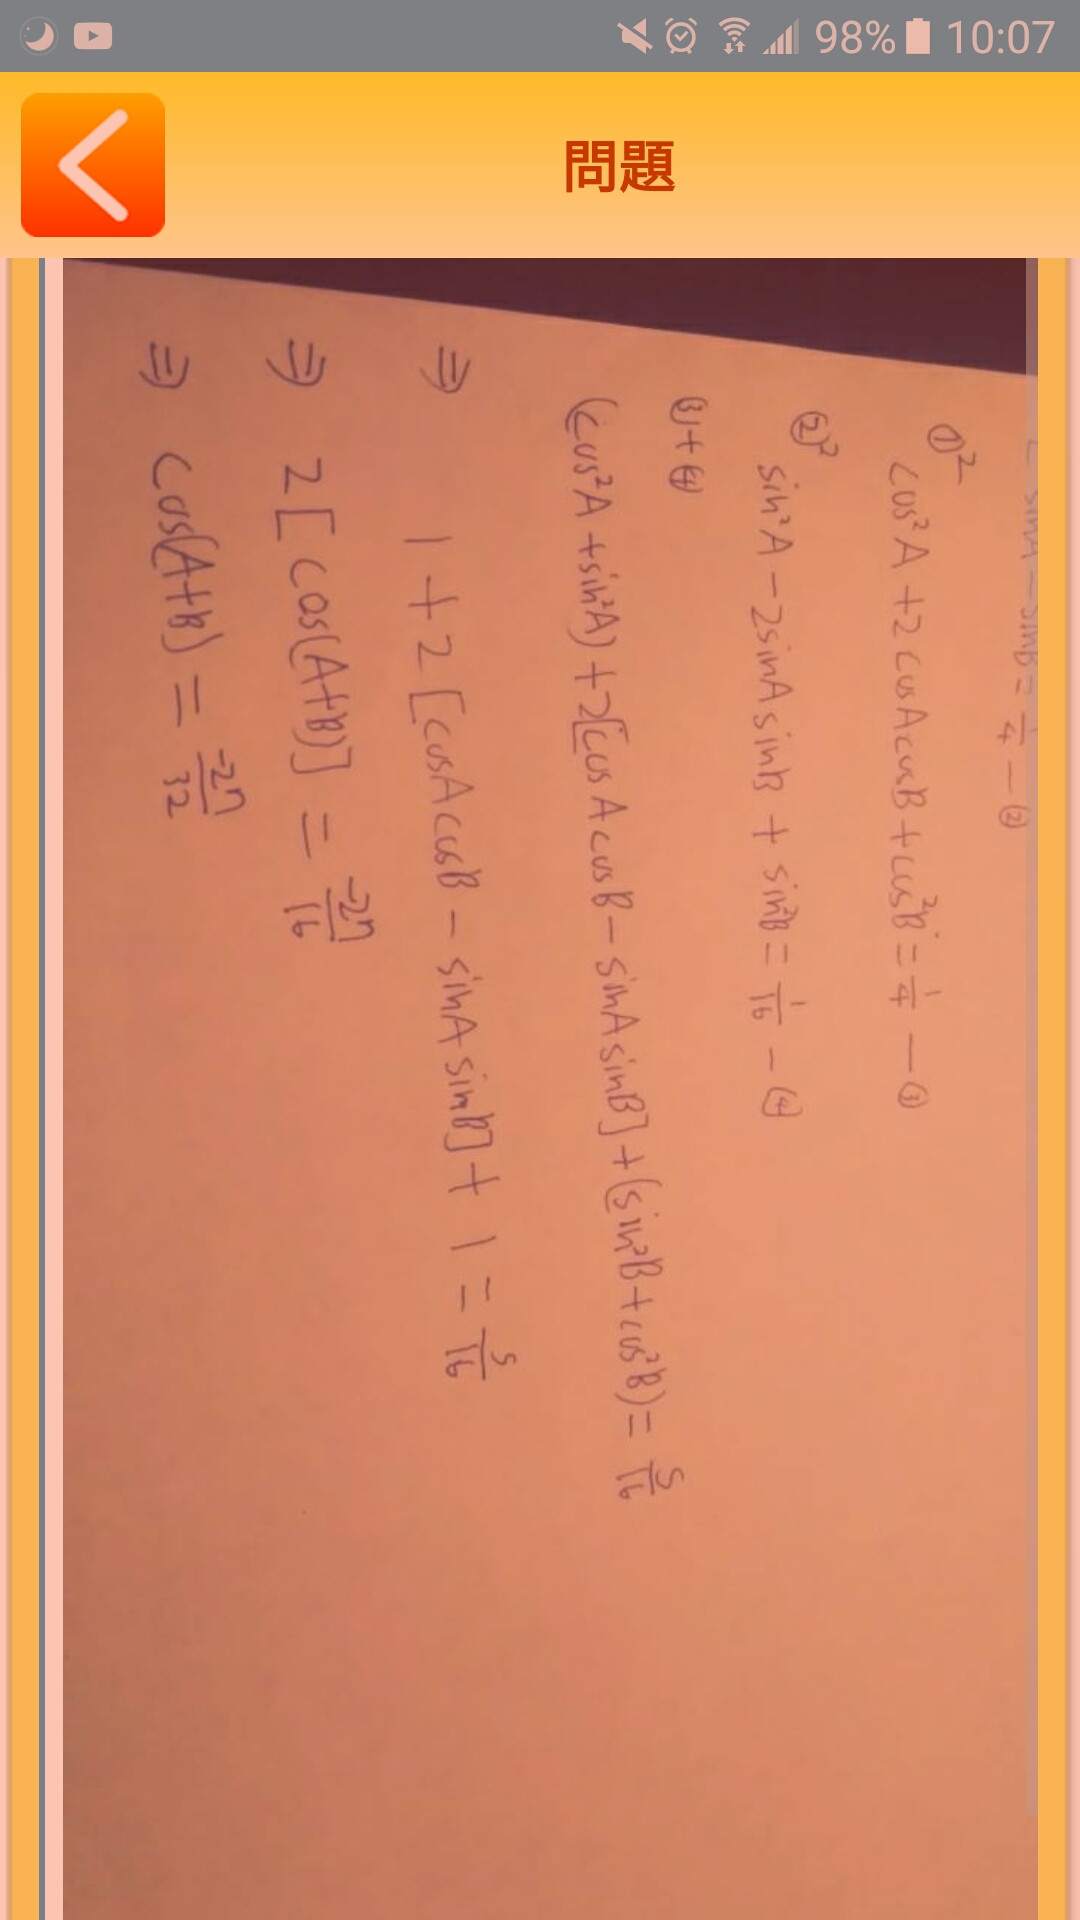 98% 10:07
問題
sinA - sinB = 1/4 — ②
①²
cos²A + 2cosAcosB + cos²B = 1/4 — ③
②²
sin²A - 2sinAsinB + sin²B = 1/16 — ④
③+④
(cos²A + sin²A) + 2[cosAcosB - sinAsinB] + (sin²B + cos²B) = 5/16
⇒ 1 + 2[cosAcosB - sinAsinB] + 1 = 5/16
⇒ 2[cos(A+B)] = -27/16
⇒ cos(A+B) = -27/32